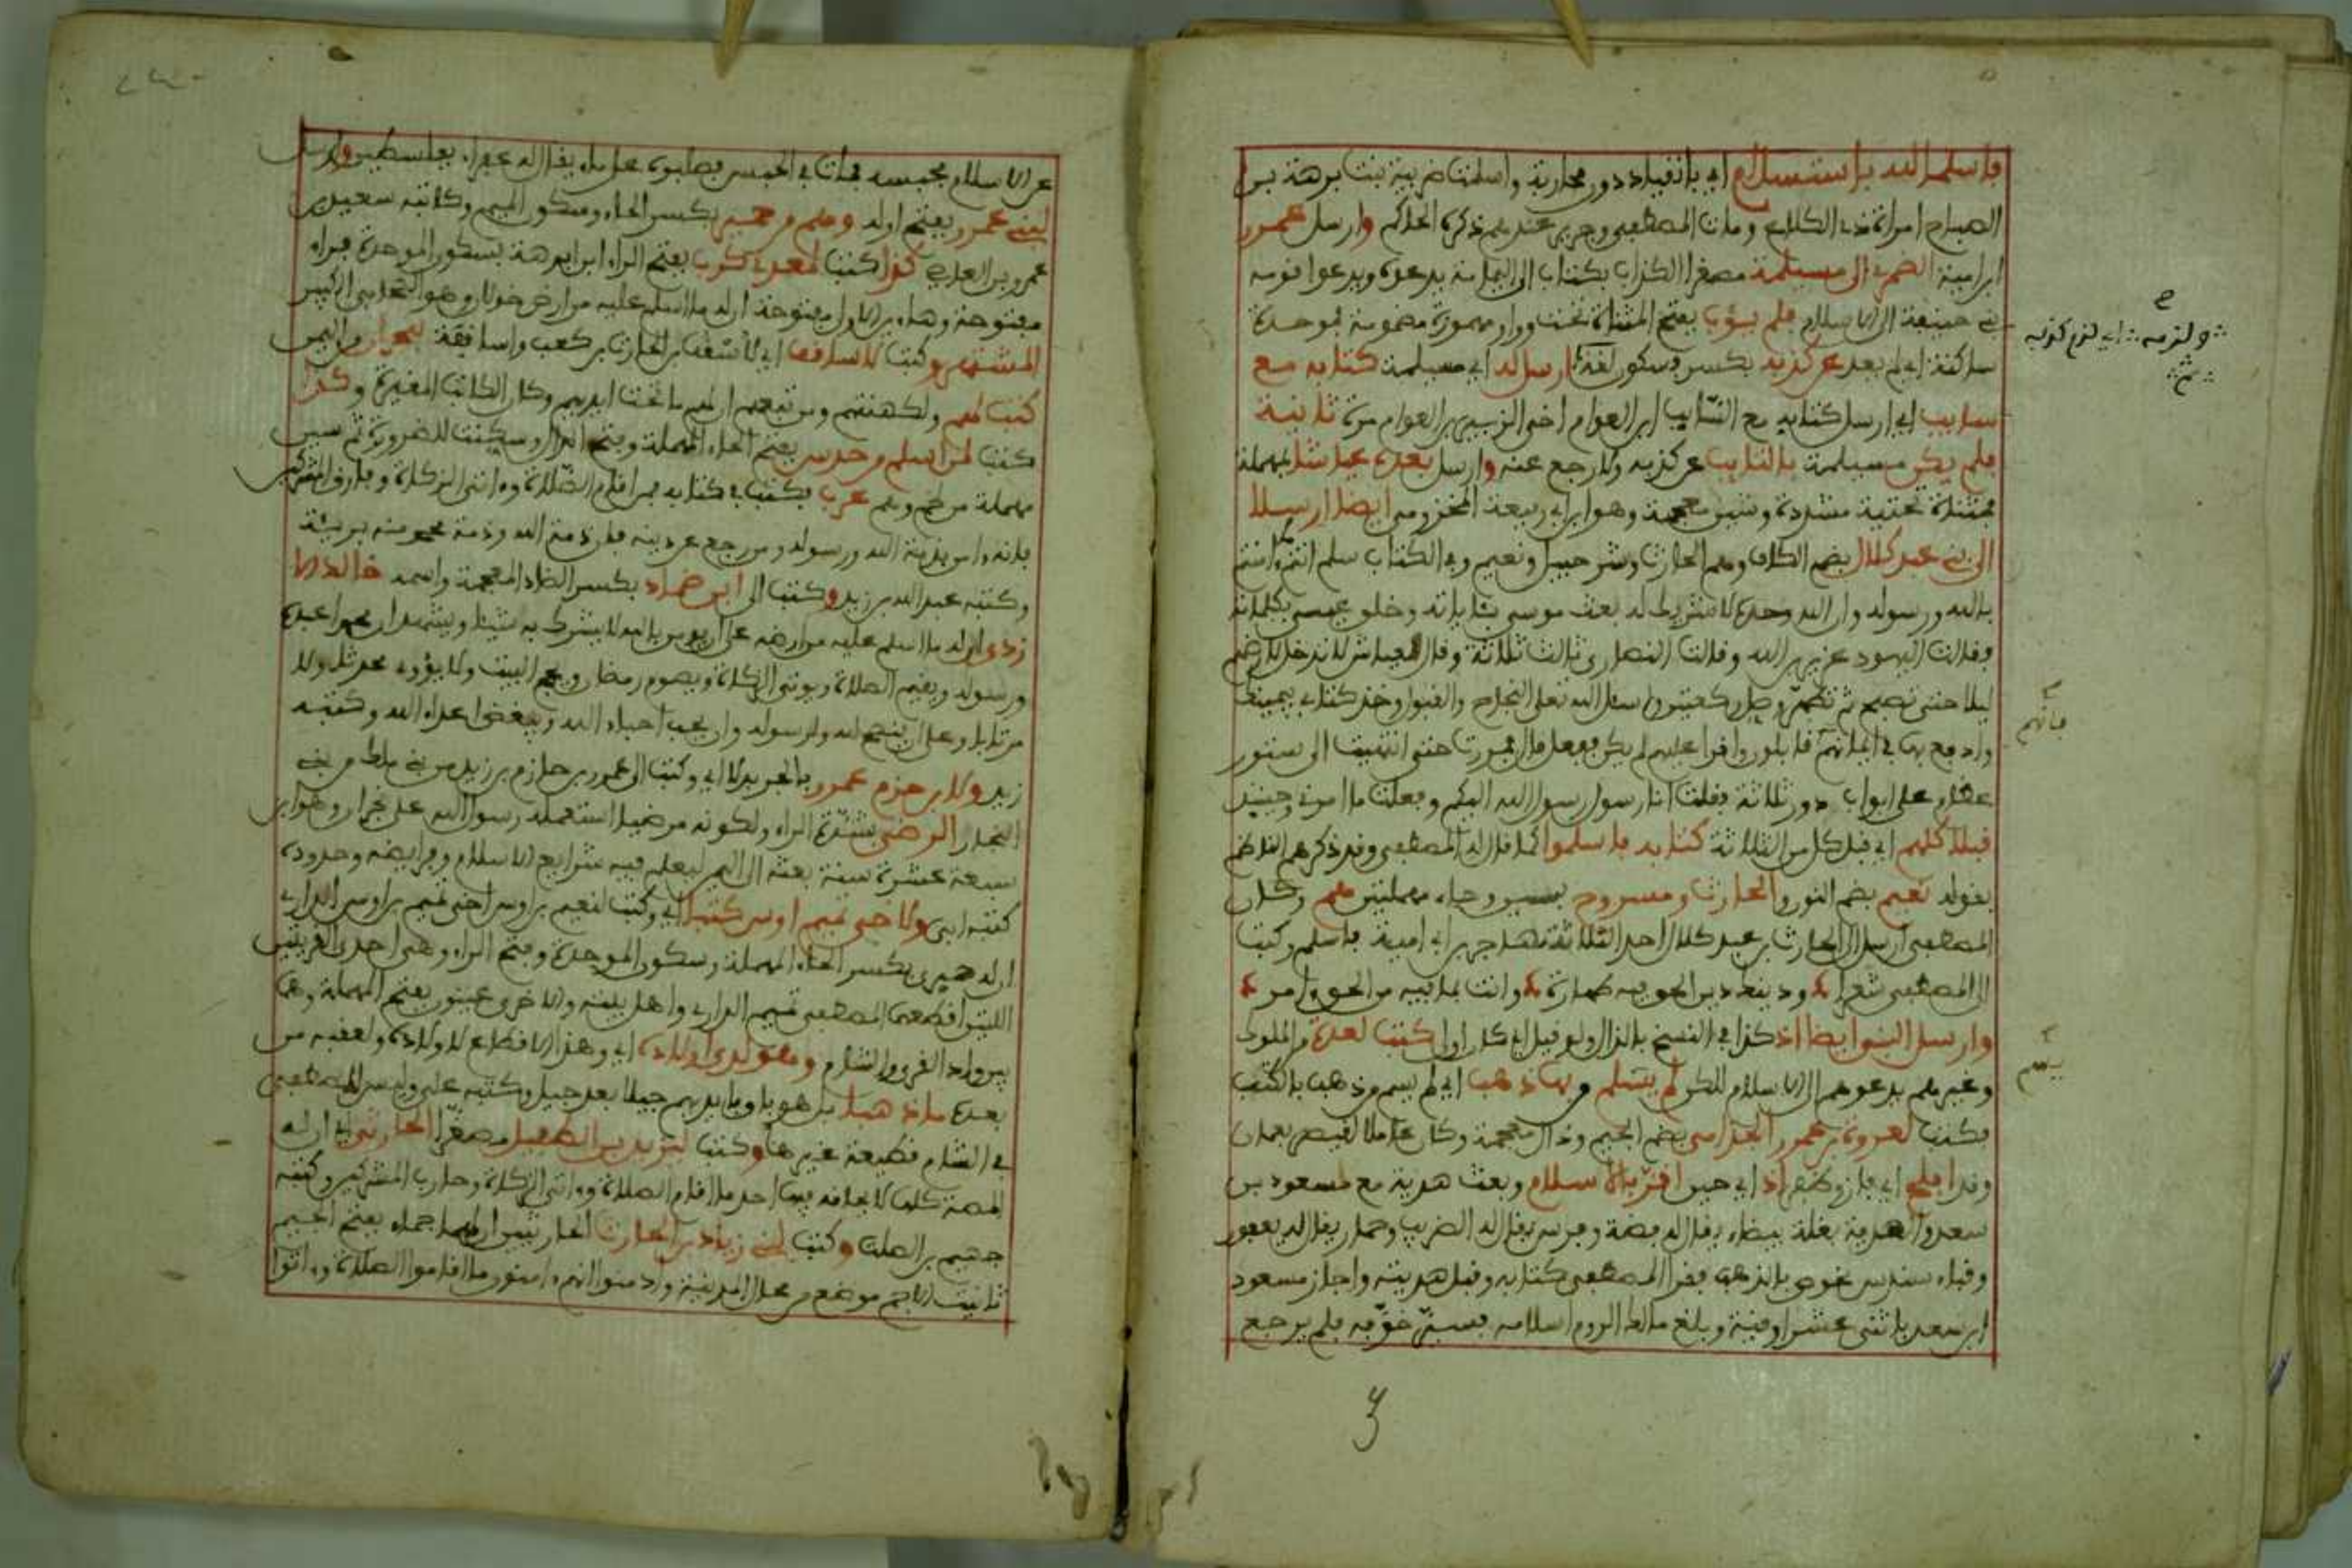 فاسلما لله باستسلام اي بانقياد دون محاربة واسلمت ضريبة بنت برهة بن
الصباح امراة ذي الكلاع ومات المصطفى وجرير عندهم ذكره الحاكم وارسل عمرو
ابن امية الضمري الى مسيلمة مصغرا الكذاب بكتاب الى اليمامة يدعوه ويدعوا قومه
بني حنيفة الى الاسلام فلم يؤب بفتح المثناة تحت وواو مهموزة مضمومة فموحدة
ساكنة اي لم يعد عن كذبه بكسر وسكون لغة ارسل له اي مسيلمة كتابه مع
سايب اي ارسل كتابه مع السايب ابن العوام اخي الزبير بن العوام مرة ثانية
فلم يكن مسيلمة بالتايب عن كذبه ولا رجع عنه وارسل بعده عياشا بمهملة
فمثناة تحتية مشددة وشين معجمة وهو ابن ابي ربيعة المخزومي ايضا ارسلا
الى بني عبد كلال بضم الكاف وهم الحارث وشرحبيل ونعيم وفي الكتاب سلم انتم ءامنتم
بالله ورسوله وان الله وحده لا شريك له بعث موسى بئاياته وخلق عيسى بكلماته
وقالت اليهود عزير بن الله وقالت النصارى ثالث ثلاثة وقال لعياش لا تدخل ارضهم
ليلا حتى تصبح ثم تطهر وصل ركعتين واسئل الله تعلى النجاح والقبول وخذ كتابي بيمينك
وادفع بها في ايمانهم فابلون واقرا عليهم لم يكن ففعل قال فمررت حتى انتهيت الى ستور
عظام على ابواب دور ثلاثة فقلت انا رسول رسول الله اليكم وفعلت ما امرني وحينئذ
قبلا كلهم اي قبل كل من الثلاثة كتابه فاسلموا كما قال له المصطفى وقد ذكرهم الناظم
بقوله نعيم بضم النون والحارث ومسروح بسين وحاء مهملتين هم وكان
المصطفى ارسل الى الحارث بن عبد كلال احد الثلاثة مهاجر بن ابي امية فاسلم وكتب
الى المصطفى شعرا ودينك دين الحق فيه طهارة وانت بما فيه من الحق ءامر
وارسل النبي ايضا اذ كذا في النسخ بالذال ولو قيل اي كان اولى كتب لعدة من الملوك
وغيرهم يدعوهم الى الاسلام لكن لم يتسلم من بها ذهب اي لم يسم من ذهب بالكتب
فكتب لعروة بن عمرو الجذامي بضم الجيم وذال معجمة وكان عاملا لقيصر بعمان
وقد افلح اي فاز وظفر اذ اي حين اقر بالاسلام وبعث هدية مع مسعود بن
سعد والهدية بغلة بيضاء يقال له فضة وفرس يقال له الضريب وحمار يقال له يعفور
وقباء سندس مخوص بالذهب فقرا المصطفى كتابه وقبل هديته واجاز مسعود
ابن سعد باثنتي عشر اوقية وبلغ مالك الروم اسلامه فحبسه خوفه فلم يرجع
ولزمه اي لزم كونه
فانهم
عن الاسلام فحبسه فمات في الحبس فصلبوه على ماء يقال له عفراء بفلسطين وارسل
لبني عمرو بفتح اوله وهم من حمير بكسر الحاء وسكون الميم وكاتبه سعيد بن
عمرو بن العاصي كذا كتب لمعدي كرب بفتح الراء ابن ابرهة بسكون الموحدة فراء
مفتوحة وهاء بن الاول مفتوحة ان له ما اسلم عليه من ارض خولان وهو
المشتهر وكتب للاساقف اي لاسقف بن الحارث بن كعب واساقفة نجران من اليمن
كتب لهم ولكهنتهم ومن تبعهم ان لهم ما تحت ايديهم وكان الكاتب المغيرة وكذا
كتب لمن اسلم من حدس بفتح الحاء المهملة وبفتح الدال وسكنت للضرورة ثم سين
مهملة من لخم وهم عرب فكتب في كتابه من اقام الصلاة وءاتى الزكاة وفارق المشركين
فانه ءامن بذمة الله ورسوله ومن رجع عن دينه فان ذمة الله وذمة محمد منه بريئة
وكتبه عبد الله بن زيد وكتب الى ابن ضماد بكسر الضاد المعجمة واسمه خالد
ازدي ان له ما اسلم عليه من ارضه على ان يومن بالله لا يشرك به شيئا ويشهد ان محمدا عبده
ورسوله ويقيم الصلاة ويوتي الزكاة ويصوم رمضان ويحج البيت ولا يؤوي محدثا ولا
مرتابا وعلى ان ينصح لله ولرسوله وان يحب احباء الله ويبغض اعداء الله وكتبه
زيد ولابن حزم عمرو بالجر بدلا اي وكتب الى عمرو بن حازم بن زيد من بني مالك من بني
النجار الرضى بشدة الراء ولكونه مرضيا استعمله رسول الله على نجران وهو ابن
سبعة عشرة سنة بعثه الى اليمن ليعلم فيه شرايع الاسلام وفرايضه وحدوده
كتبه ابي ولاخي تميم اوس كتبا اي وكتب لنعيم بن اوس اخي تميم بن اوس الداري
ان له حبرى بكسر الحاء المهملة وسكون الموحدة وفتح الراء وهي احدى القريتين
اللتين اقطعهما المصطفى تميم الداري واهل بيته والاخرى عينون بفتح المهملة وهما
بين وادي القرى والشام وهو لدى اولاده اي وهذا الاقطاع له ولاولاده ولعقبه من
بعده ما ذهبا بل هو باق بايديهم جيلا بعد جيل وكتبه علي وليس للمصطفى
في الشام قطيعة غيرها وكتب ليزيد بن الطفيل مصغرا الحارثي ان له
المضة كلها لا يحاقه فيها احد ما اقام الصلاة وءاتى الزكاة وحارب المشركين وكتبه
جهيم بن الصلت وكتب لبني زياد بن الحارث الحارثيين ان لهم جماء بفتح الجيم
تانيث الاجم موضع من عمل المدينة واذنبه وانهم ءامنون ما اقاموا الصلاة وءاتوا